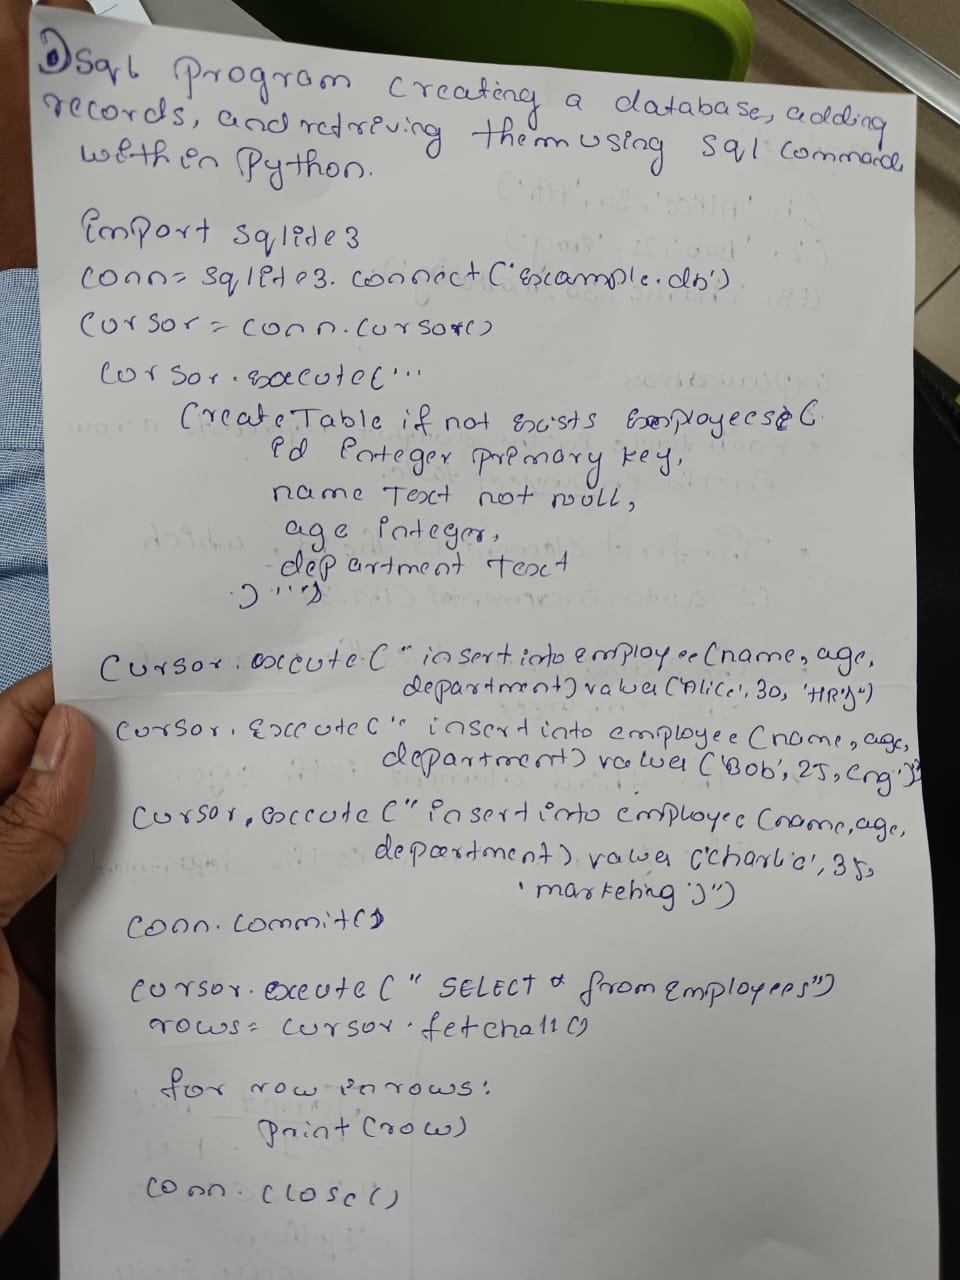 1) Sql program creating a database, adding
records, and retreving them using sql command
within Python.
import sqlite3
conn = sqlite3.connect('example.db')
cursor = conn.cursor()
cursor.execute('''
Create Table if not exists employees (
id integer primary key,
name Text not null,
age integer,
department text
) ''')
cursor.execute(" insert into employee (name, age,
department) values ('Alice', 30, 'HR')")
cursor.execute(" insert into employee (name, age,
department) values ('Bob', 25, eng')"
cursor.execute(" insert into employee (name, age,
department) values ('charlie', 35,
'marketing')")
conn.commit()
cursor.execute(" SELECT * from employees")
rows = cursor.fetchall()
for row in rows:
print(row)
conn.close()